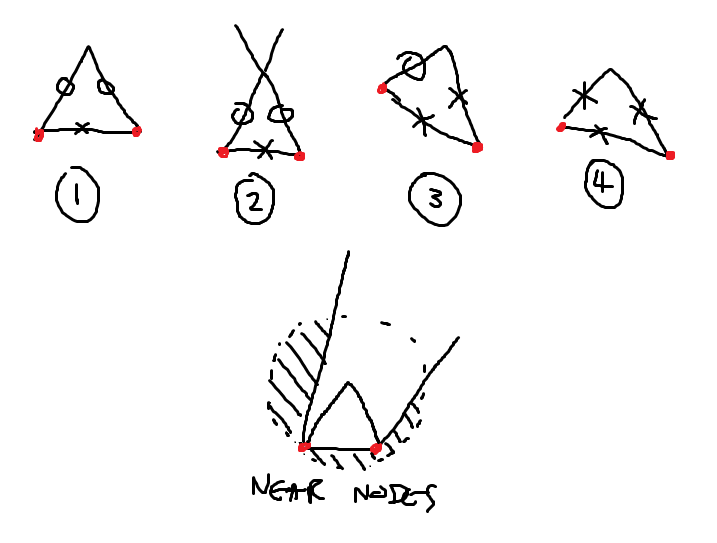 1 2 3 4
NEAR NODES